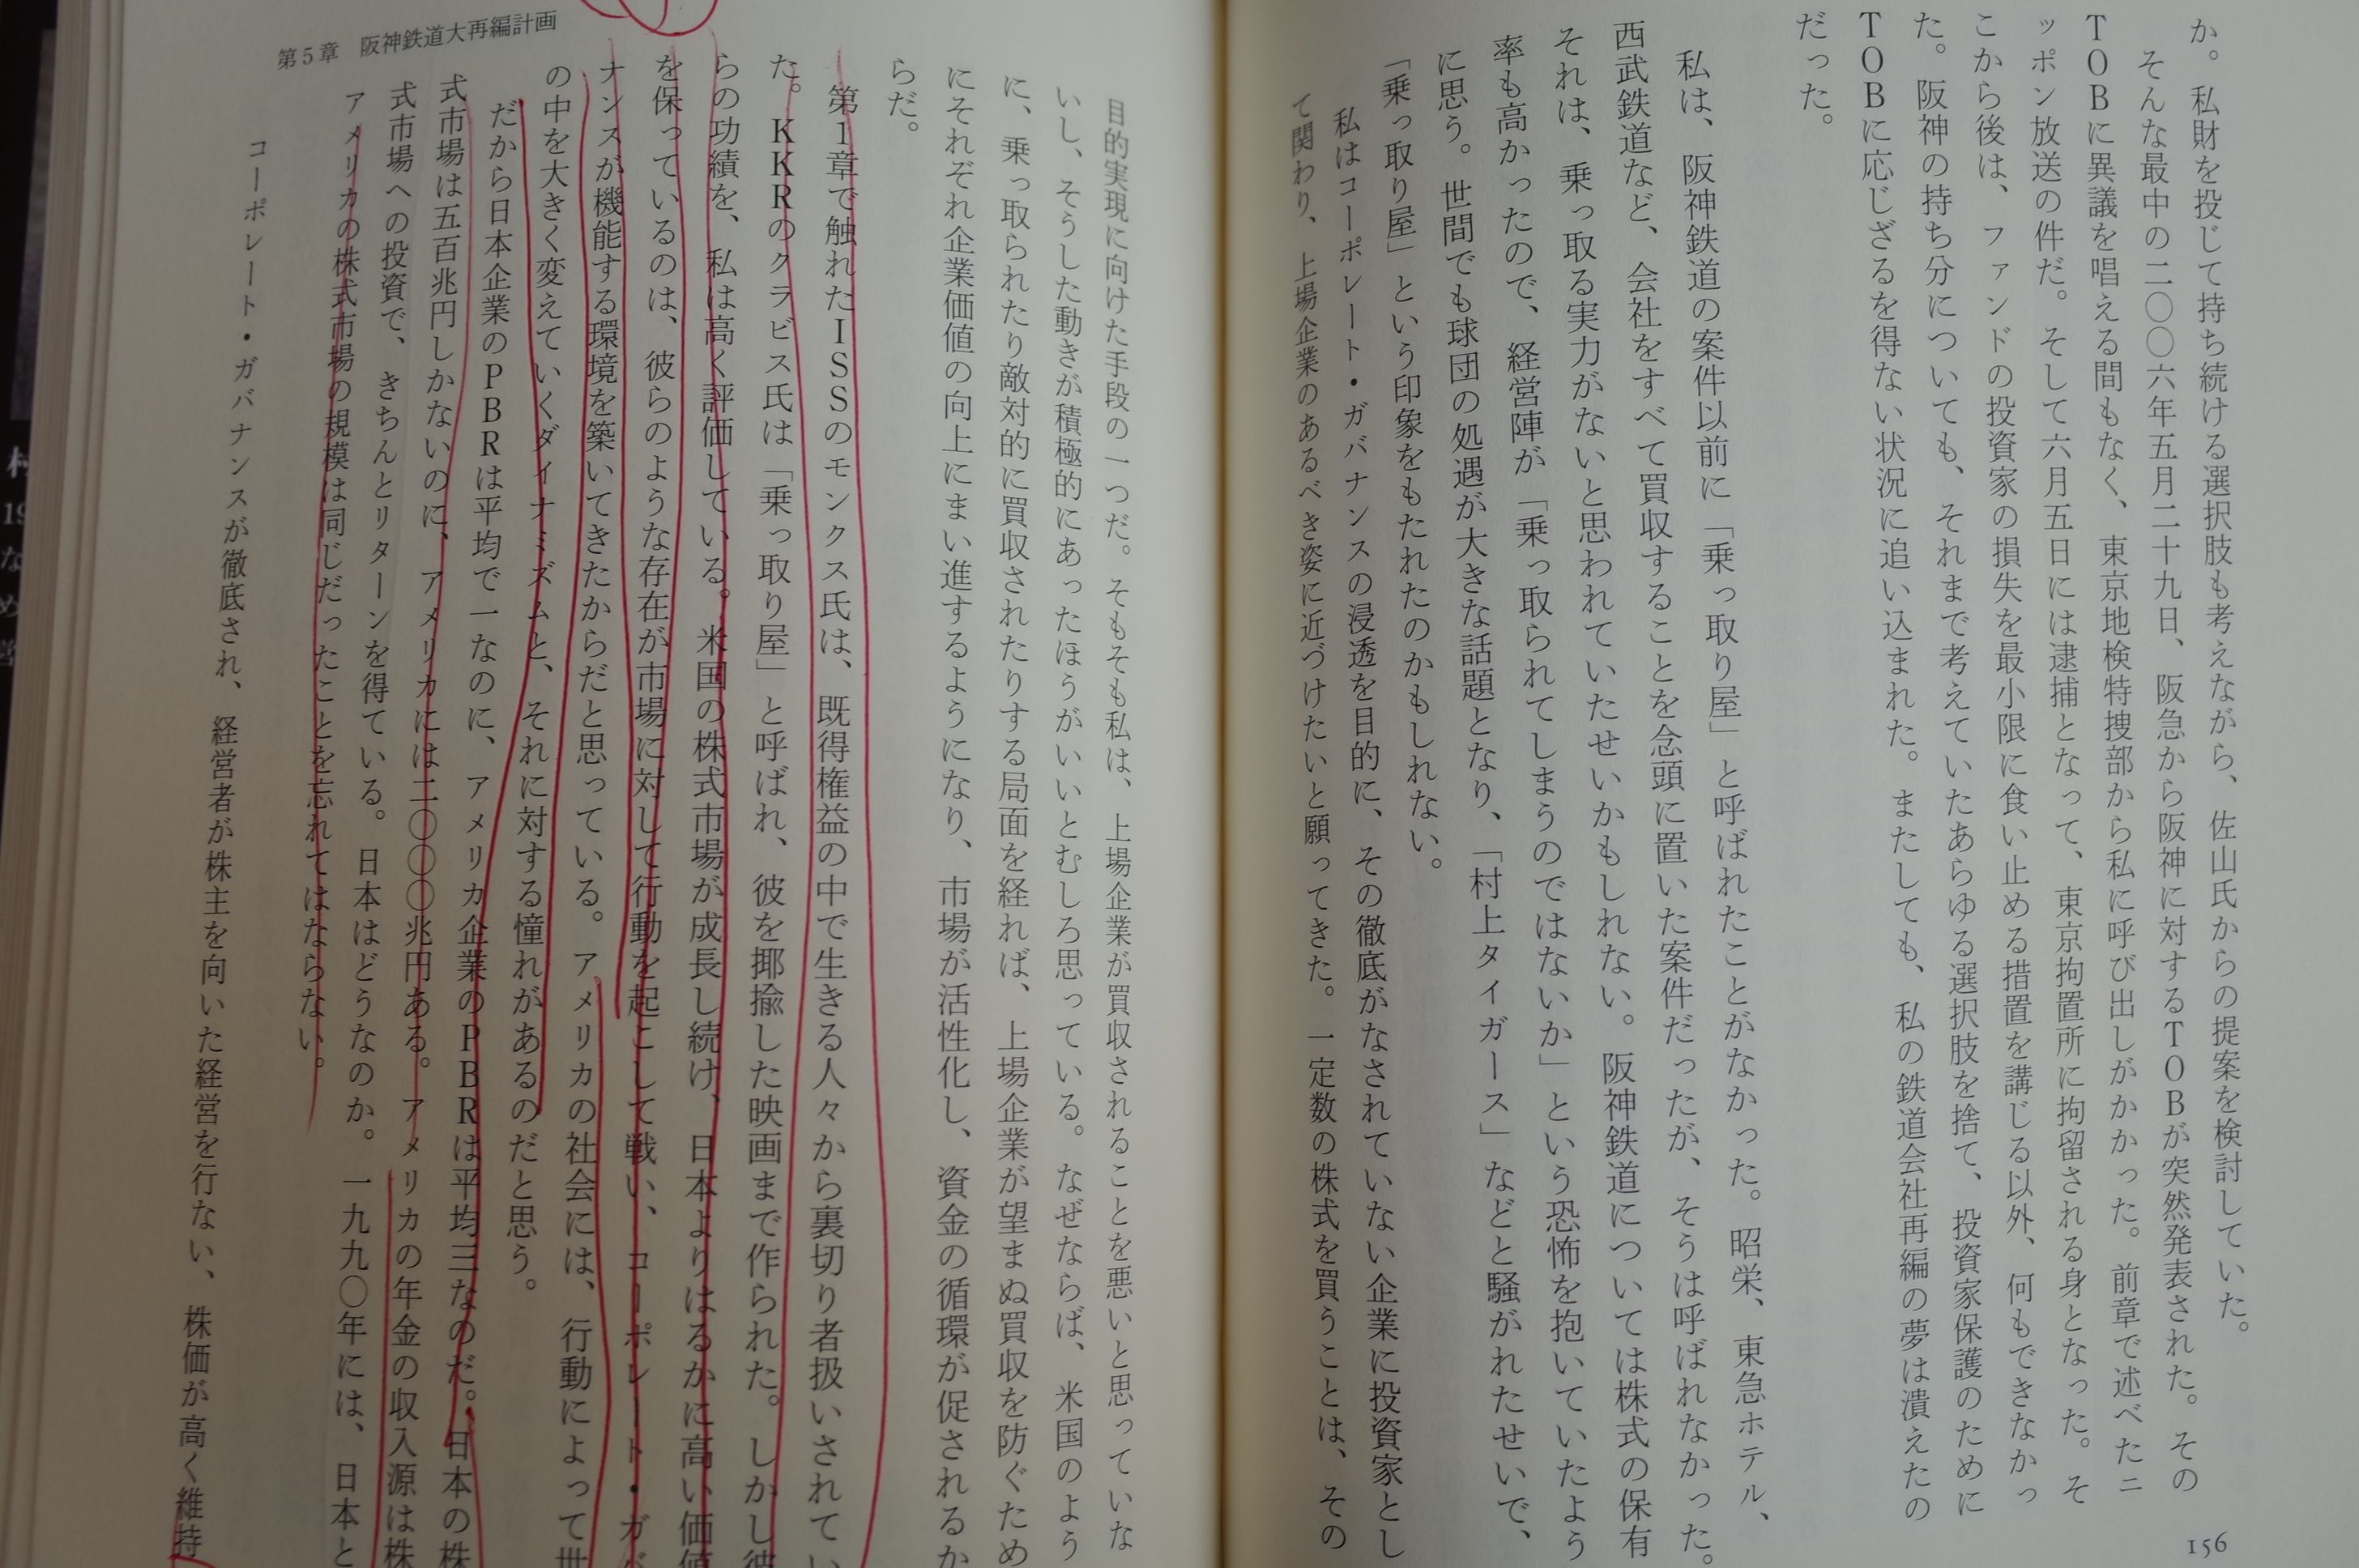 か。私財を投じて持ち続ける選択肢も考えながら、佐山氏からの提案を検討していた。
そんな最中の二〇〇六年五月二十九日、阪急から阪神に対するTOBが突然発表された。その
TOBに異議を唱える間もなく、東京地検特捜部から私に呼び出しがかかった。前章で述べたニ
ッポン放送の件だ。そして六月五日には逮捕となって、東京拘置所に拘留される身となった。そ
こから後は、ファンドの投資家の損失を最小限に食い止める措置を講じる以外、何もできなかっ
た。阪神の持ち分についても、それまで考えていたあらゆる選択肢を捨て、投資家保護のために
TOBに応じざるを得ない状況に追い込まれた。またしても、私の鉄道会社再編の夢は潰えたの
だった。
私は、阪神鉄道の案件以前に「乗っ取り屋」と呼ばれたことがなかった。昭栄、東急ホテル、
西武鉄道など、会社をすべて買収することを念頭に置いた案件だったが、そうは呼ばれなかった。
それは、乗っ取る実力がないと思われていたせいかもしれない。阪神鉄道については株式の保有
率も高かったので、経営陣が「乗っ取られてしまうのではないか」という恐怖を抱いていたよう
に思う。世間でも球団の処遇が大きな話題となり、「村上タイガース」などと騒がれたせいで、
「乗っ取り屋」という印象をもたれたのかもしれない。
私はコーポレート・ガバナンスの浸透を目的に、その徹底がなされていない企業に投資家とし
て関わり、上場企業のあるべき姿に近づけたいと願ってきた。一定数の株式を買うことは、その
156
第5章 阪神鉄道大再編計画
目的実現に向けた手段の一つだ。そもそも私は、上場企業が買収されることを悪いと思っていな
いし、そうした動きが積極的にあったほうがいいとむしろ思っている。なぜならば、米国のよう
に、乗っ取られたり敵対的に買収されたりする局面を経れば、上場企業が望まぬ買収を防ぐため
にそれぞれ企業価値の向上にまい進するようになり、市場が活性化し、資金の循環が促されるか
らだ。
第1章で触れたISSのモンクス氏は、既得権益の中で生きる人々から裏切り者扱いされてい
た。KKRのクラビス氏は「乗っ取り屋」と呼ばれ、彼を揶揄した映画まで作られた。しかし彼
らの功績を、私は高く評価している。米国の株式市場が成長し続け、日本よりはるかに高い価値
を保っているのは、彼らのような存在が市場に対して行動を起こして戦い、コーポレート・ガバ
ナンスが機能する環境を築いてきたからだと思っている。アメリカの社会には、行動によって世
の中を大きく変えていくダイナミズムと、それに対する憧れがあるのだと思う。
だから日本企業のPBRは平均で一なのに、アメリカ企業のPBRは平均三なのだ。日本の株
式市場は五百兆円しかないのに、アメリカには二〇〇〇兆円ある。アメリカの年金の収入源は株
式市場への投資で、きちんとリターンを得ている。日本はどうなのか。一九九〇年には、日本と
アメリカの株式市場の規模は同じだったことを忘れてはならない。
コーポレート・ガバナンスが徹底され、経営者が株主を向いた経営を行ない、株価が高く維持